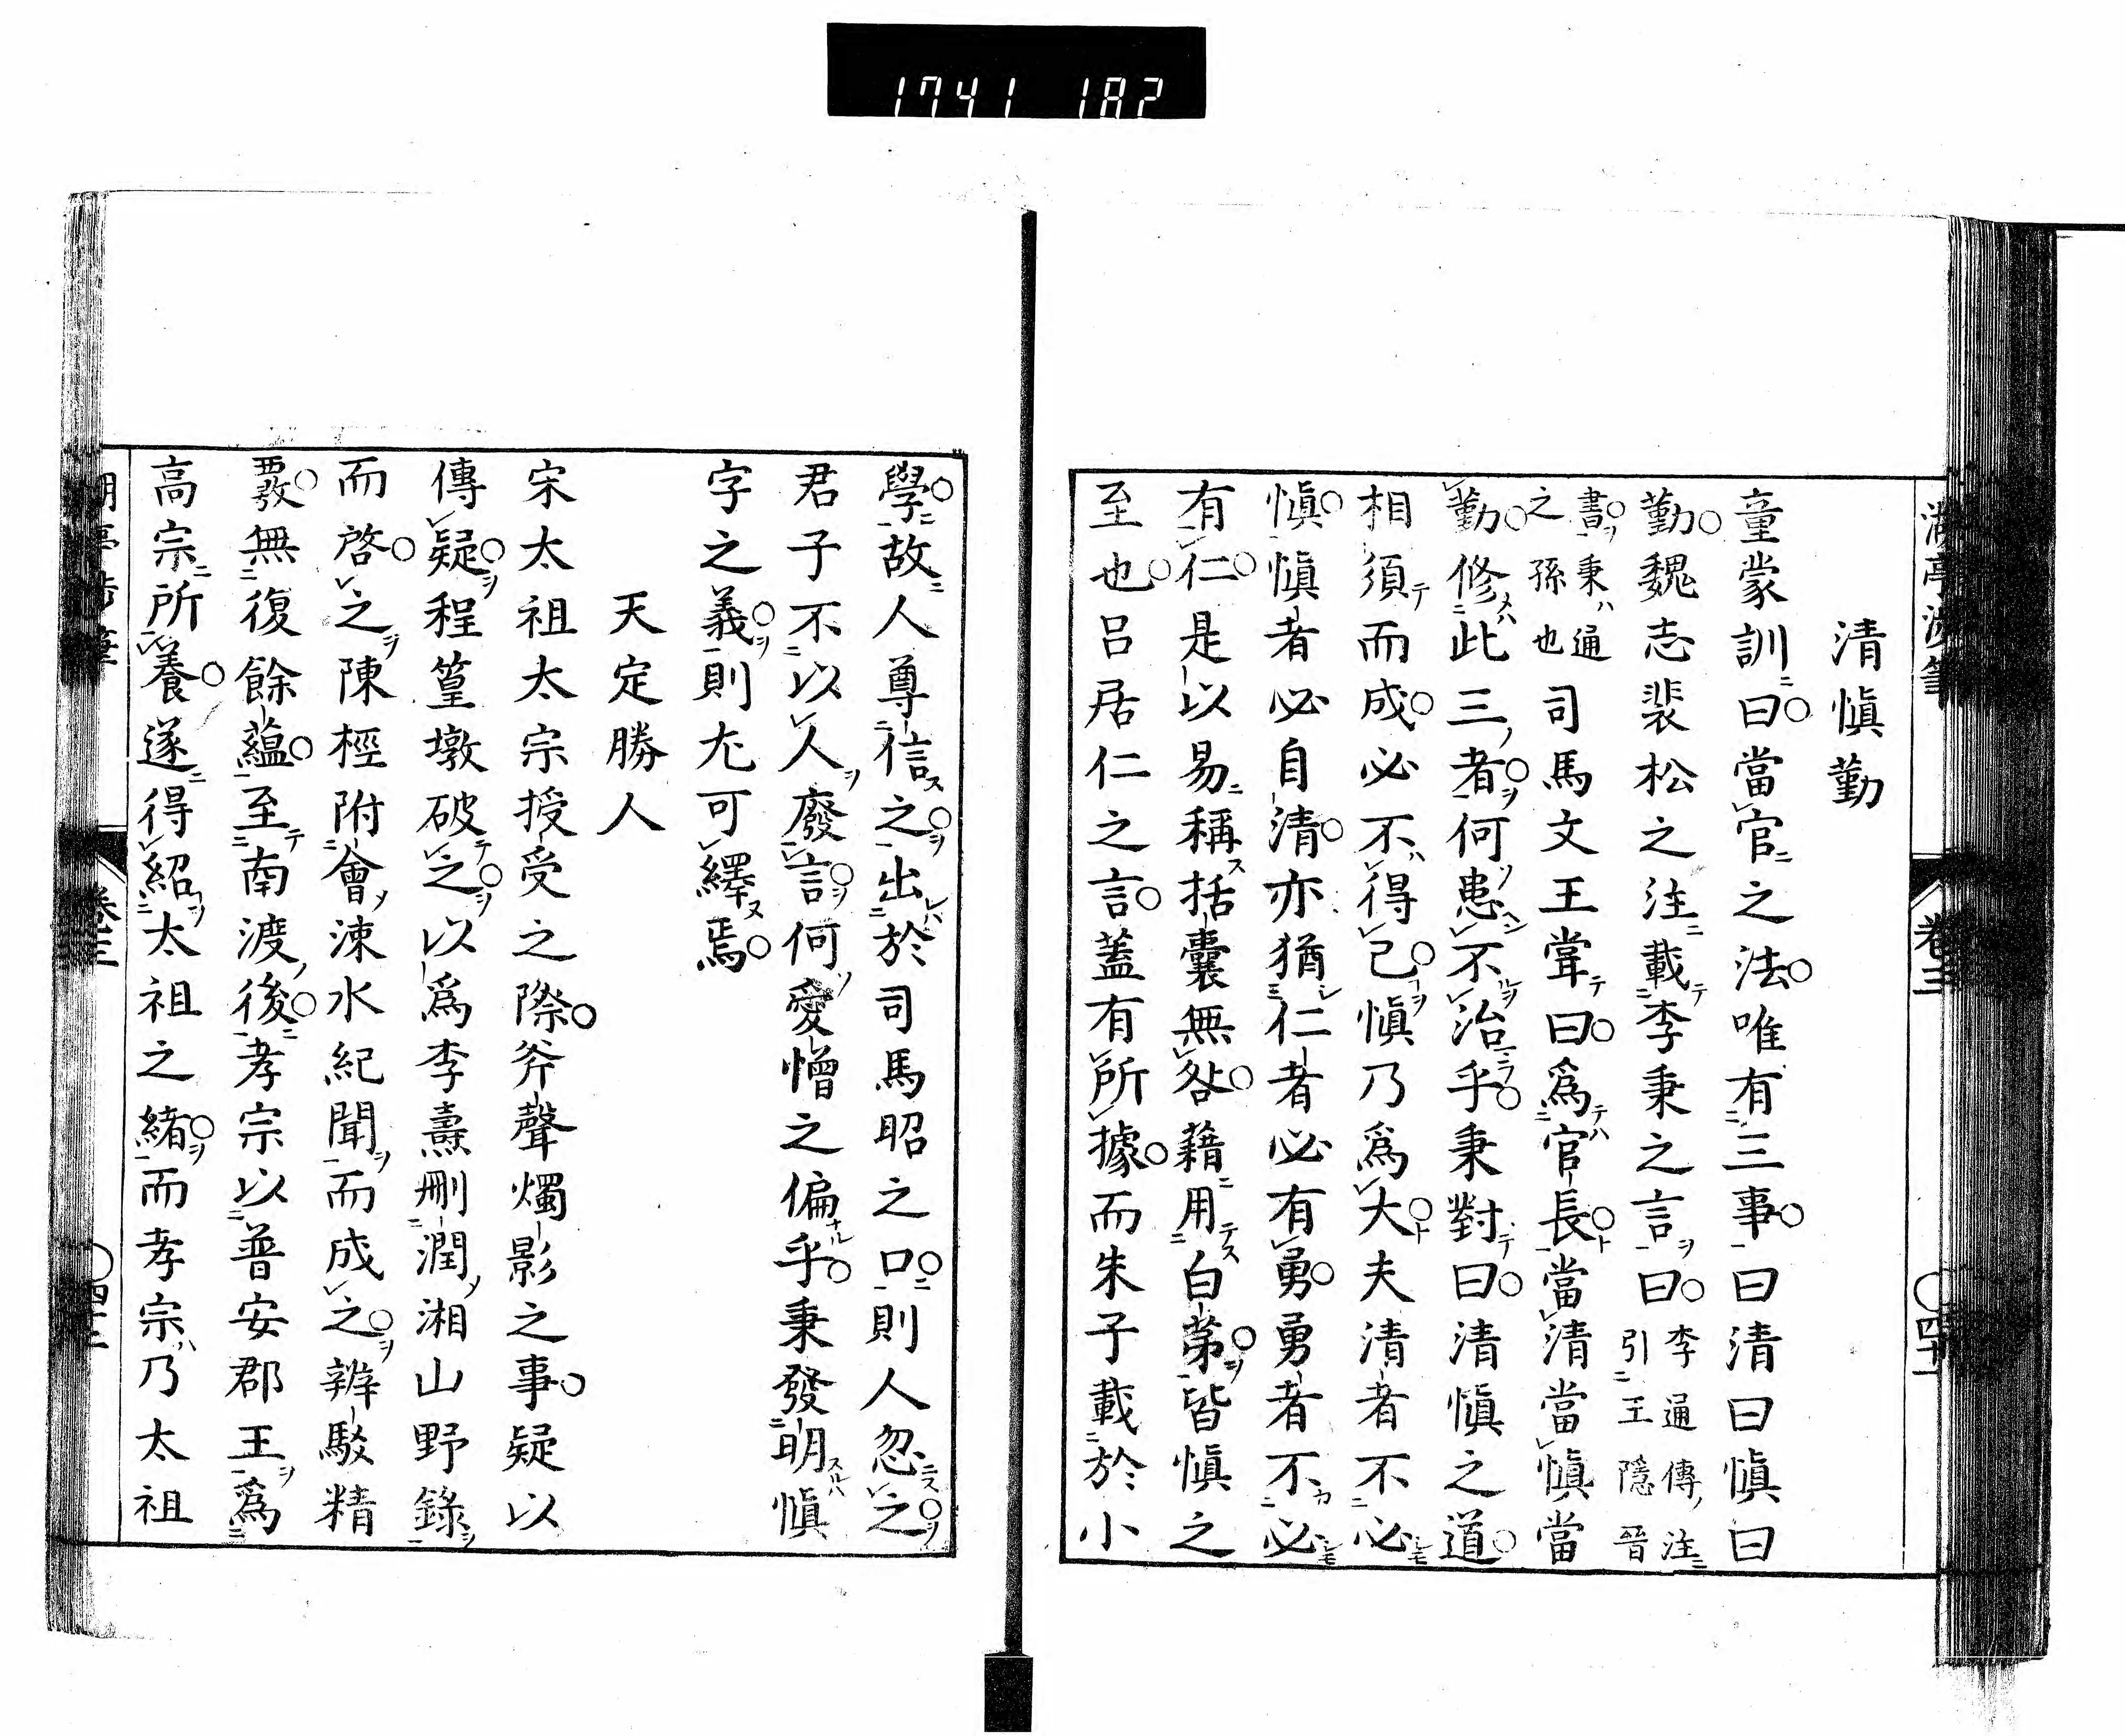 1741 182
清愼勤
童蒙訓曰當官之法唯有三事曰清曰愼曰
勤魏志裴松之注載李秉之言曰李通傳注引王隱晉
書秉ハ通之孫也司馬文王甞曰爲官長當清當愼當
勤修此三者何患不治乎秉對曰清愼之道
相須而成必不得已愼乃爲大夫清者不必
愼愼者必自清亦猶仁者必有勇勇者不必
有仁是以易稱括囊無咎藉用白茅皆愼之
至也呂居仁之言蓋有所據而朱子載於小
學故人尊信之出於司馬昭之口則人忽之
君子不以人廢言何愛憎之偏乎秉發明愼
字之義則尤可繹焉
天定勝人
宋太祖太宗授受之際斧聲燭影之事疑以
傳疑程篁墩破之以爲李燾刪潤湘山野錄
而啓之陳桱附會涑水紀聞而成之辨駁精
覈無復餘蘊至南渡後孝宗以普安郡王爲
高宗所養遂得紹太祖之緒而孝宗乃太祖
卷三